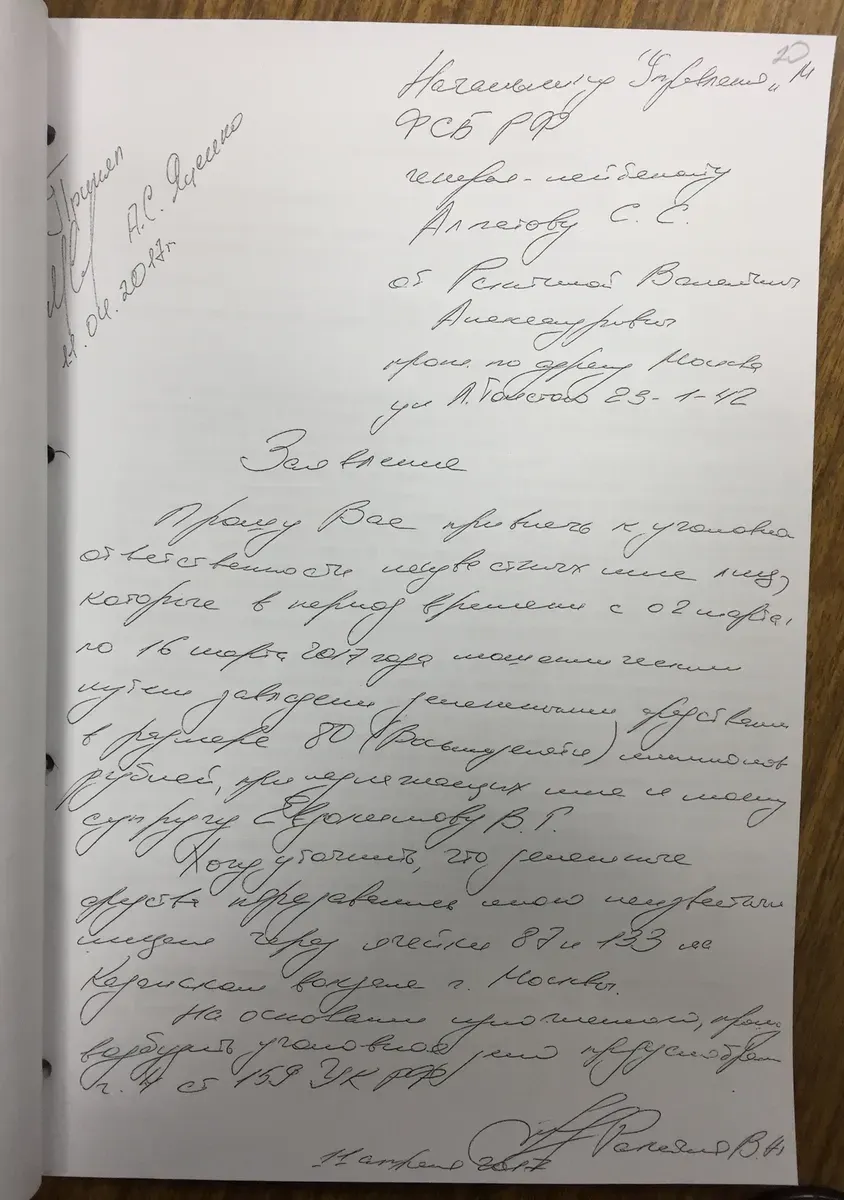 20
Начальнику "Управления „М
ФСБ РФ
генерал-лейтенанту
Алпатову С. С.
от Ракитиной Валентины
Александровны
прож. по адресу Москва
ул Л.Толстого 23-1-42
Принял
А.С. Яценко
11.04.2017г
Заявление
Прошу Вас привлечь к уголовно
ответственности неизвестных мне лиц,
которые в период времени с 02 марта
по 16 марта 2017 года мошенническим
путем завладели денежными средствами
в размере 80 (Восьмидесяти) миллионов
рублей, принадлежащих мне и моему
супругу Евдокимову В. Г.
Хочу уточнить, что денежные
средства передавались мною неизвестным
лицам через ячейки 87 и 133 на
Казанском вокзале г. Москвы.
На основании изложенного, прошу
возбудить уголовное дело предусмотрен
ч. 4 ст 159 УК РФ
Ракитина В.А
11 апреля 2017